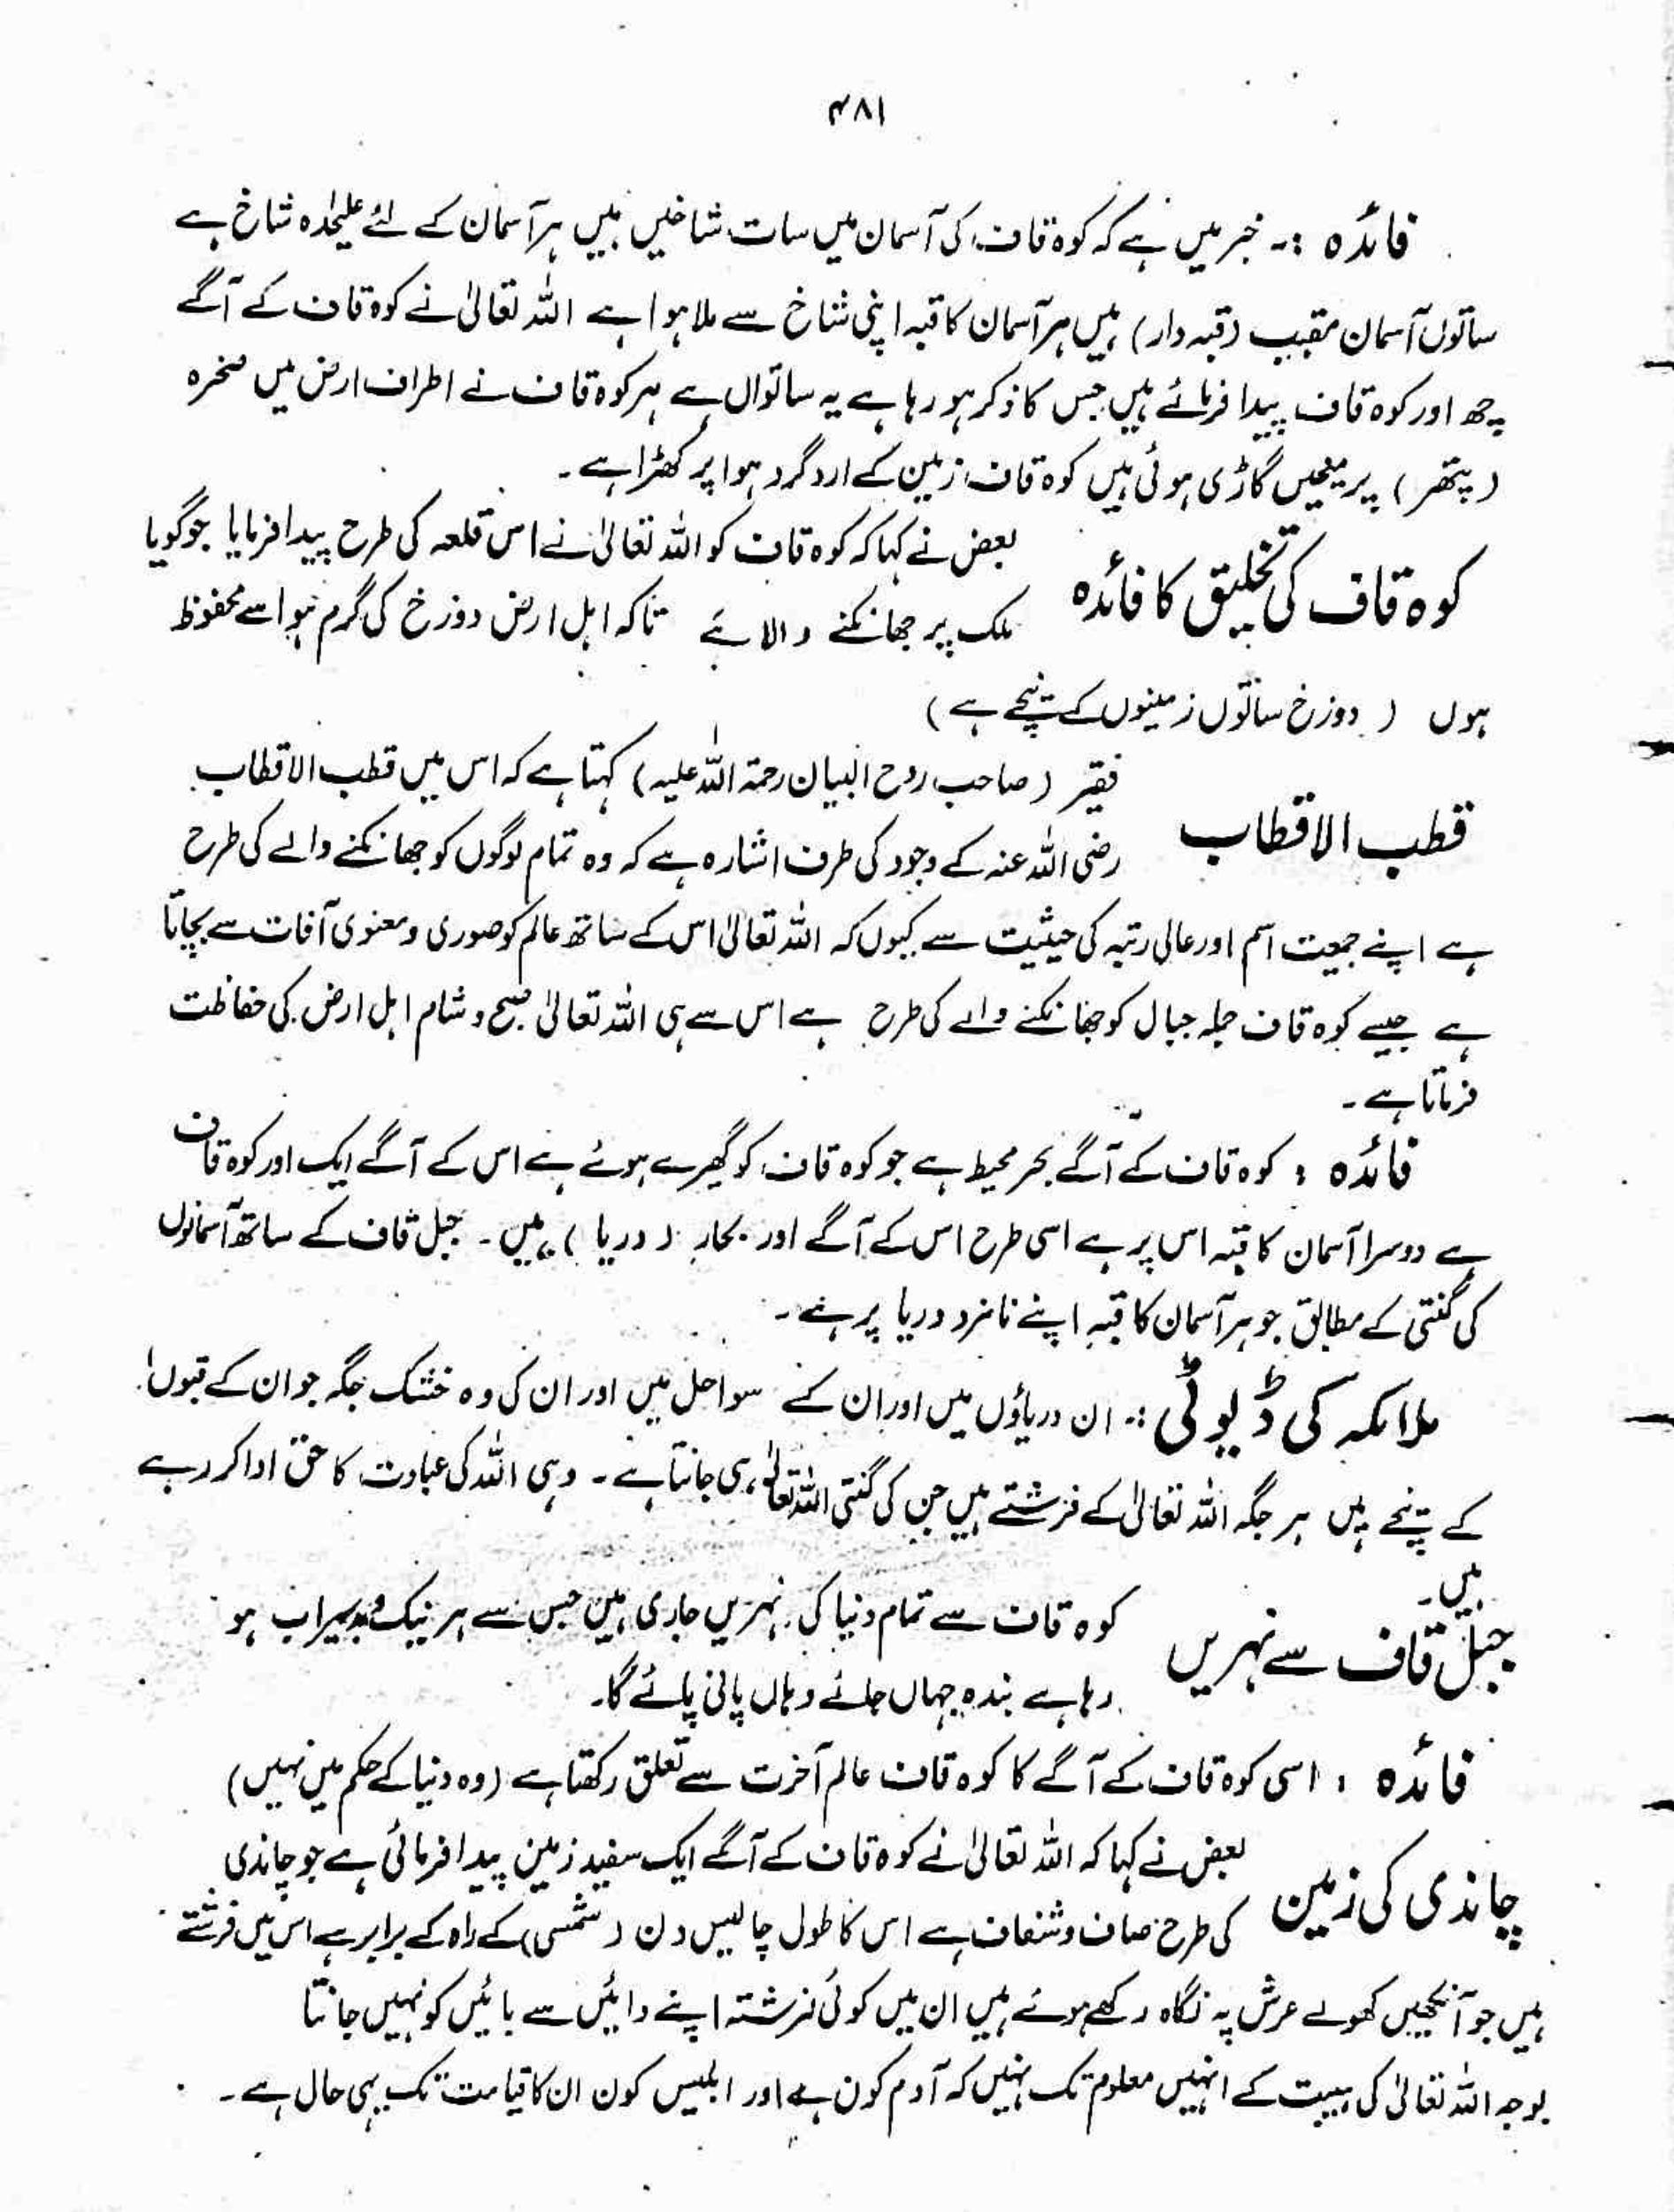 ۴۸۱
فائدہ :۔ خبر میں ہے کہ کوہ قاف کی آسمان میں سات شاخیں ہیں ہر آسمان کے لئے علیحٰدہ شاخ ہے
ساتوں آسمان مقبب (قبہ دار) ہیں ہر آسمان کا قبہ اپنی شاخ سے ملا ہوا ہے اللہ تعالیٰ نے کوہ قاف کے آگے
چھ اور کوہ قاف پیدا فرمائے ہیں جس کا ذکر ہو رہا ہے یہ ساتواں ہے ہر کوہ قاف نے اطراف ارض میں صخرہ
(پتھر) پر میخیں گاڑی ہوئی ہیں کوہ قاف زمین کے ارد گرد ہوا پر کھڑا ہے۔
کوہ قاف کی تخلیق کا فائدہ
بعض نے کہا کہ کوہ قاف کو اللہ تعالیٰ نے اس قلعہ کی طرح پیدا فرمایا جو گویا
ملک پر جھانکنے والا ہے تاکہ اہل ارض دوزخ کی گرم ہوا سے محفوظ
ہوں (دوزخ ساتوں زمینوں کے نیچے ہے)
قطب الاقطاب
فقیر (صاحب روح البیان رحمۃ اللہ علیہ) کہتا ہے کہ اس میں قطب الاقطاب
رضی اللہ عنہ کے وجود کی طرف اشارہ ہے کہ وہ تمام لوگوں کو جھانکنے والے کی طرح
ہے اپنے جمعیت اسم اور عالی رتبہ کی حیثیت سے کیوں کہ اللہ تعالیٰ اس کے ساتھ عالم کو صوری و معنوی آفات سے بچاتا
ہے جیسے کوہ قاف جملہ جبال کو جھانکنے والے کی طرح ہے اس سے ہی اللہ تعالیٰ صبح و شام اہل ارض کی حفاظت
فرماتا ہے۔
فائدہ : کوہ قاف کے آگے بحر محیط ہے جو کوہ قاف کو گھیرے ہوئے ہے اس کے آگے ایک اور کوہ قاف
ہے دوسرا آسمان کا قبہ اس پر ہے اسی طرح اس کے آگے اور بحار (دریا) ہیں۔ جبل قاف کے ساتھ آسمانوں
کی گنتی کے مطابق جو ہر آسمان کا قبہ اپنے نامزد دریا پر ہے۔
ملائکہ کی ڈیوٹی :۔ ان دریاؤں میں اور ان کے سواحل میں اور ان کی وہ خشک جگہ جو ان کے قبوں
کے نیچے ہیں ہر جگہ اللہ تعالیٰ کے فرشتے ہیں جن کی گنتی اللہ تعالیٰ ہی جانتا ہے۔ وہی اللہ کی عبادت کا حق ادا کر رہے
ہیں۔
جبل قاف سے نہریں
کوہ قاف سے تمام دنیا کی نہریں جاری ہیں جس سے ہر نیک و بد سیراب ہو
رہا ہے بندہ جہاں جائے وہاں پانی پائے گا۔
فائدہ : اسی کوہ قاف کے آگے کا کوہ قاف عالم آخرت سے تعلق رکھتا ہے (وہ دنیا کے حکم میں نہیں)
چاندی کی زمین
بعض نے کہا کہ اللہ تعالیٰ نے کوہ قاف کے آگے ایک سفید زمین پیدا فرمائی ہے جو چاندی
کی طرح صاف و شفاف ہے اس کا طول چالیس دن (شمسی) کے راہ کے برابر ہے اس میں فرشتے
ہیں جو آنکھیں کھولے عرش پہ نگاہ رکھے ہوئے ہیں ان میں کوئی فرشتہ اپنے دائیں سے بائیں کو نہیں جانتا
بوجہ اللہ تعالیٰ کی ہیبت کے انہیں معلوم تک نہیں کہ آدم کون ہے اور ابلیس کون ان کا قیامت تک یہی حال ہے۔